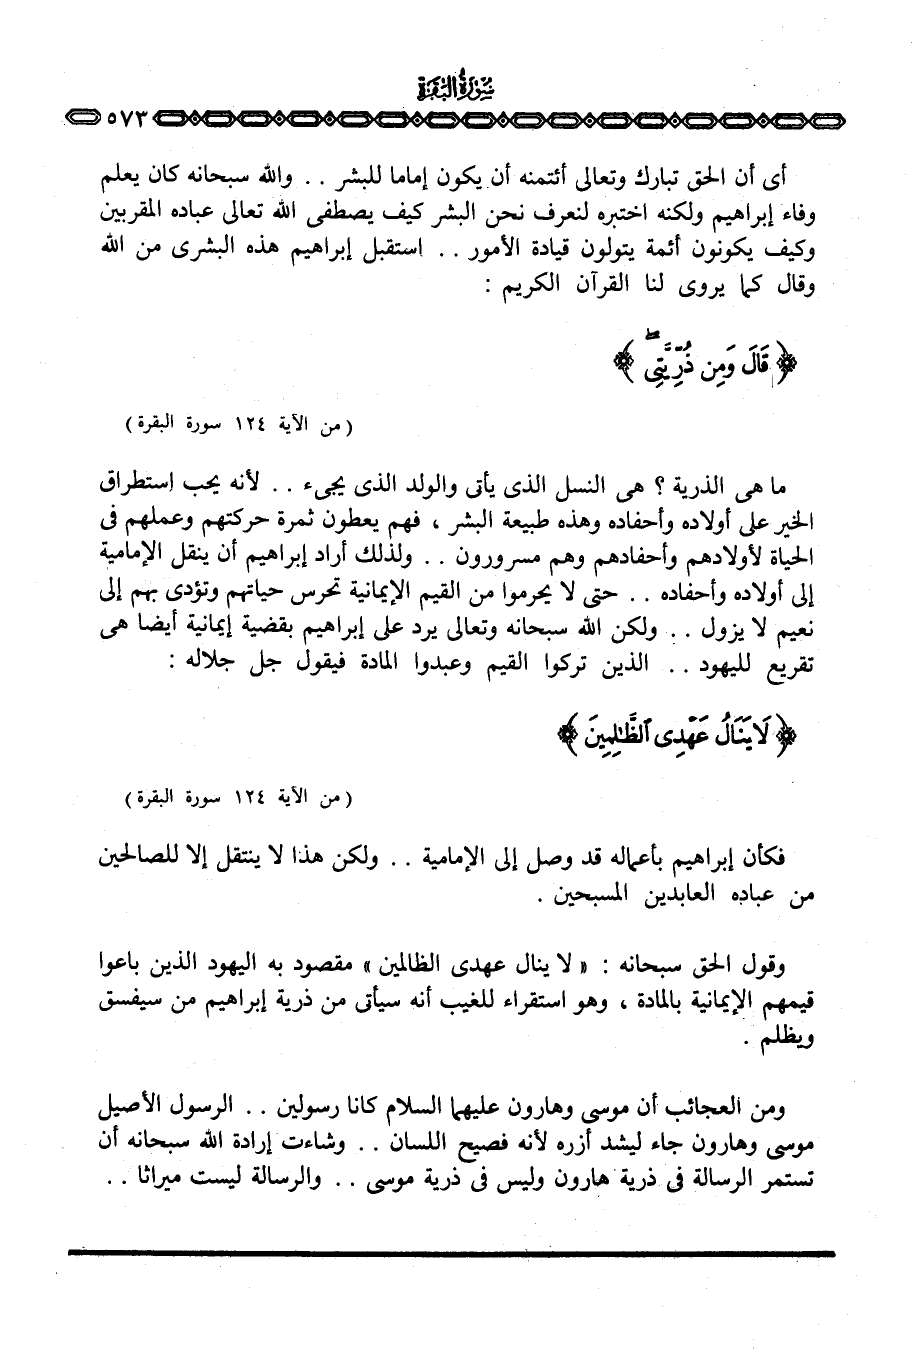 سُورَةُ البَقَرَة
٥٧٣
أى أن الحق تبارك وتعالى أئتمنه أن يكون إماما للبشر .. والله سبحانه كان يعلم
وفاء إبراهيم ولكنه اختبره لنعرف نحن البشر كيف يصطفى الله تعالى عباده المقربين
وكيف يكونون أئمة يتولون قيادة الأمور .. استقبل إبراهيم هذه البشرى من الله
وقال كما يروى لنا القرآن الكريم :
﴿ قَالَ وَمِن ذُرِّيَّتِى ۖ ﴾
( من الآية ١٢٤ سورة البقرة )
ما هى الذرية ؟ هى النسل الذى يأتى والولد الذى يجىء .. لأنه يحب استطراق
الخير على أولاده وأحفاده وهذه طبيعة البشر ، فهم يعطون ثمرة حركتهم وعملهم فى
الحياة لأولادهم وأحفادهم وهم مسرورون .. ولذلك أراد إبراهيم أن ينقل الإمامية
إلى أولاده وأحفاده .. حتى لا يحرموا من القيم الإيمانية تحرس حياتهم وتؤدى بهم إلى
نعيم لا يزول .. ولكن الله سبحانه وتعالى يرد على إبراهيم بقضية إيمانية أيضا هى
تقريع لليهود .. الذين تركوا القيم وعبدوا المادة فيقول جل جلاله :
﴿ لَا يَنَالُ عَهْدِى ٱلظَّٰلِمِينَ ﴾
( من الآية ١٢٤ سورة البقرة )
فكأن إبراهيم بأعماله قد وصل إلى الإمامية .. ولكن هذا لا ينتقل إلا للصالحين
من عباده العابدين المسبحين .
وقول الحق سبحانه : « لا ينال عهدى الظالمين » مقصود به اليهود الذين باعوا
قيمهم الإيمانية بالمادة ، وهو استقراء للغيب أنه سيأتى من ذرية إبراهيم من سيفسق
ويظلم .
ومن العجائب أن موسى وهارون عليهما السلام كانا رسولين .. الرسول الأصيل
موسى وهارون جاء ليشد أزره لأنه فصيح اللسان .. وشاءت إرادة الله سبحانه أن
تستمر الرسالة فى ذرية هارون وليس فى ذرية موسى .. والرسالة ليست ميراثا ..